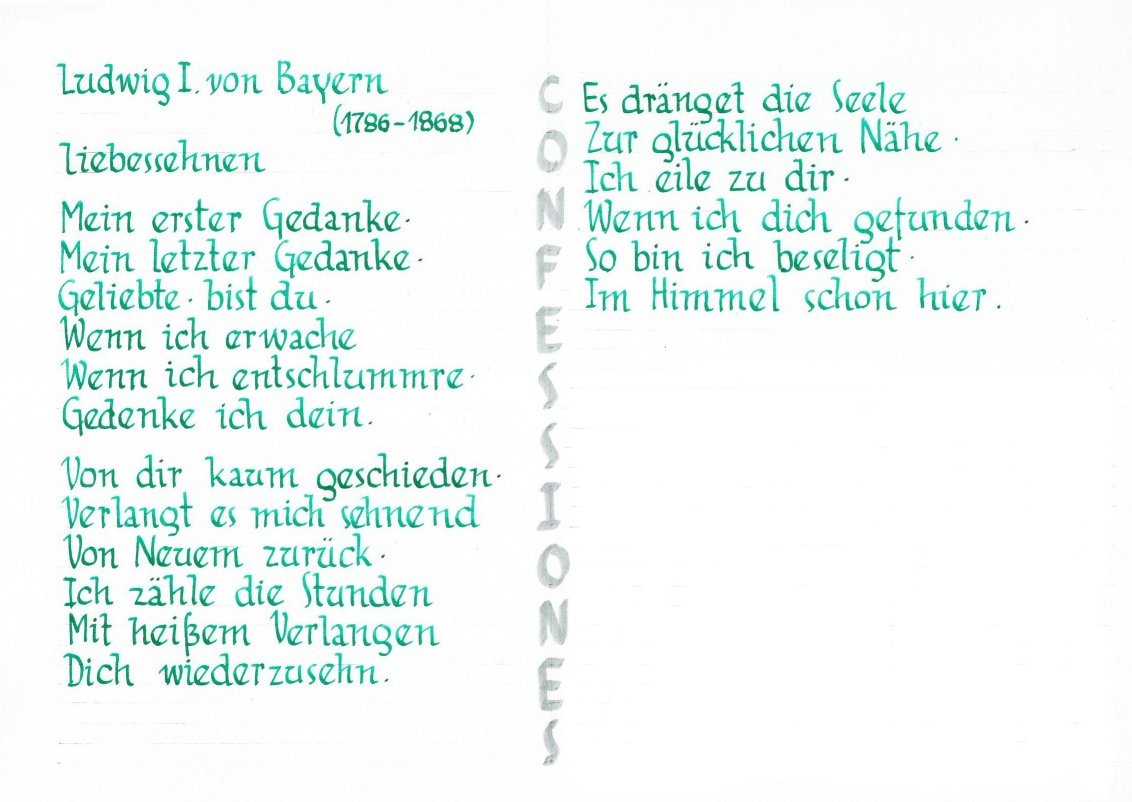 Ludwig I. von Bayern
(1786-1868)
Liebessehnen
Mein erster Gedanke·
Mein letzter Gedanke·
Geliebte· bist du·
Wenn ich erwache
Wenn ich entschlummre·
Gedenke ich dein.
Von dir kaum geschieden·
Verlangt es mich sehnend
Von Neuem zurück·
Ich zähle die Stunden
Mit heißem Verlangen
Dich wiederzusehn.
CONFESSIONES
Es dränget die Seele
Zur glücklichen Nähe·
Ich eile zu dir·
Wenn ich dich gefunden·
So bin ich beseligt·
Im Himmel schon hier.